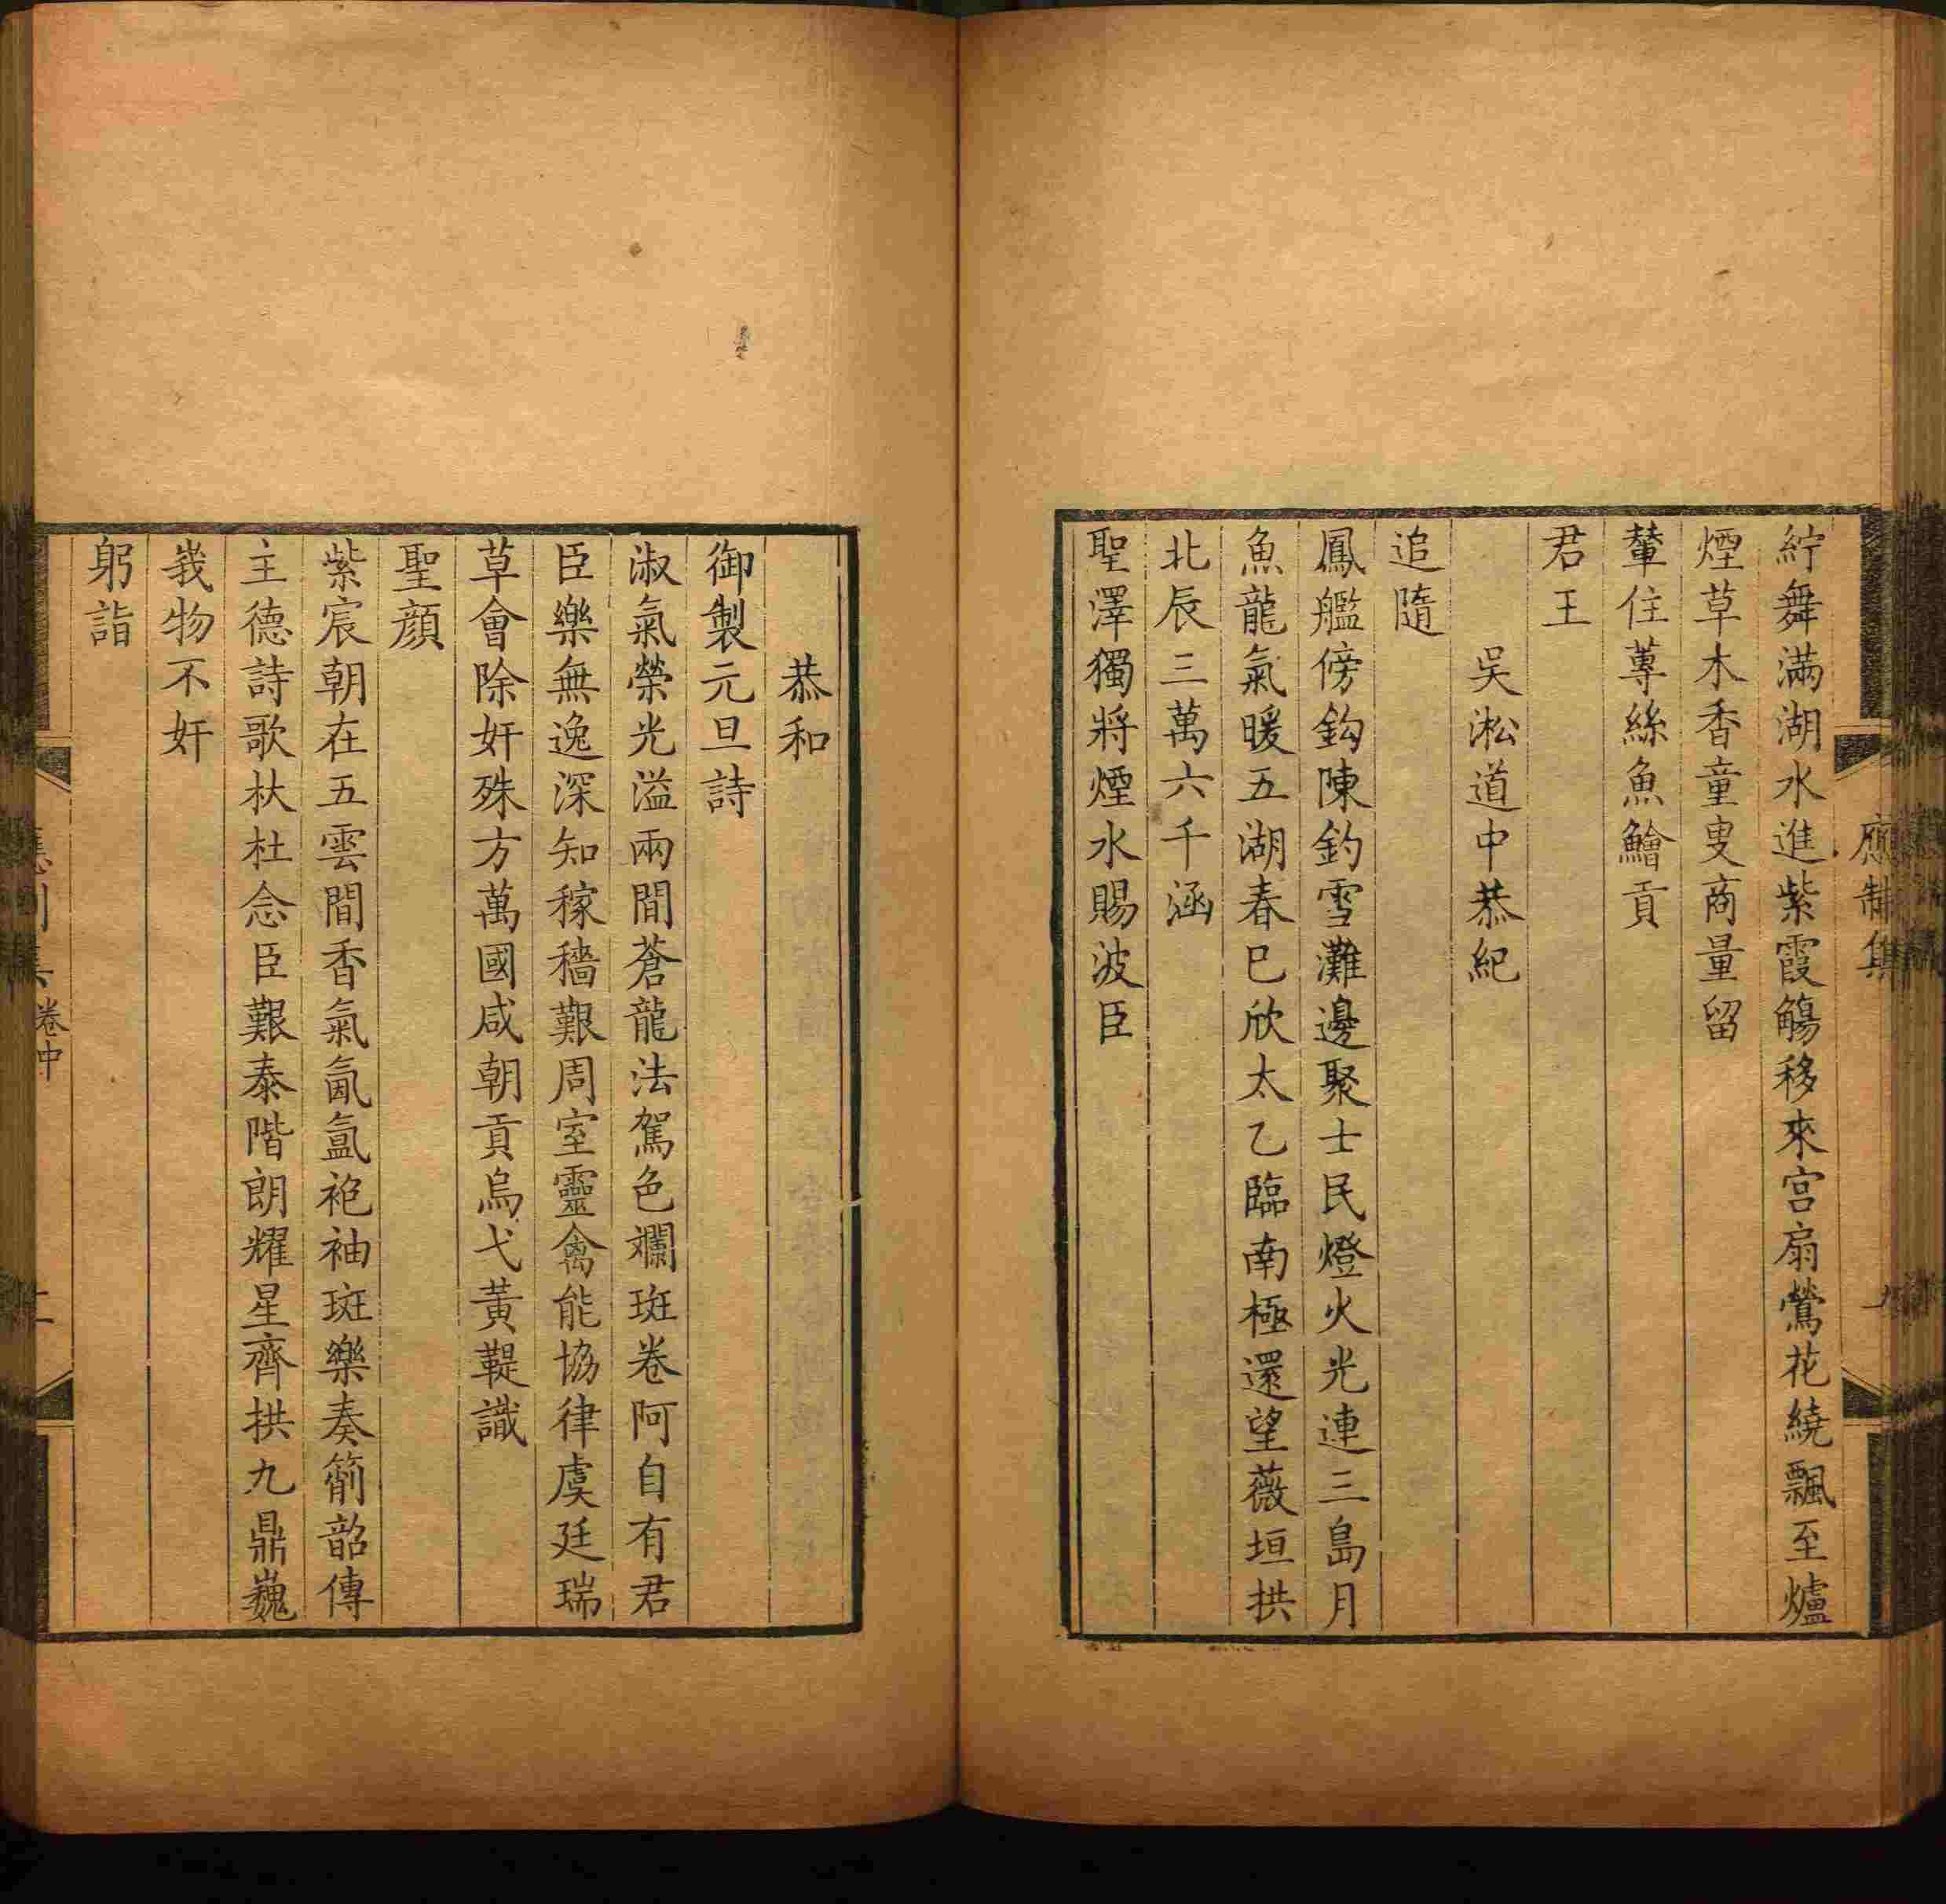 應制集
紵舞滿湖水進紫霞觴移來宫扇鶯花繞飄至爐
煙草木香童叟商量留
輦住蓴絲魚鱠貢
君王
吳淞道中恭紀
追隨
鳳艦傍鈎陳釣雪灘邊聚士民燈火光連三島月
魚龍氣暖五湖春巳欣太乙臨南極還望薇垣拱
北辰三萬六千涵
聖澤獨將煙水賜波臣
恭和
御製元旦詩
淑氣榮光溢兩間蒼龍法駕色斕斑卷阿自有君
臣樂無逸深知稼穡艱周室靈禽能協律虞廷瑞
草會除奸殊方萬國咸朝貢烏弋黃鞮識
聖顔
紫宸朝在五雲間香氣氤氳袍袖斑樂奏箾韶傳
主德詩歌杕杜念臣艱泰階朗耀星齊拱九鼎巍
峩物不奸
躬詣
卷中